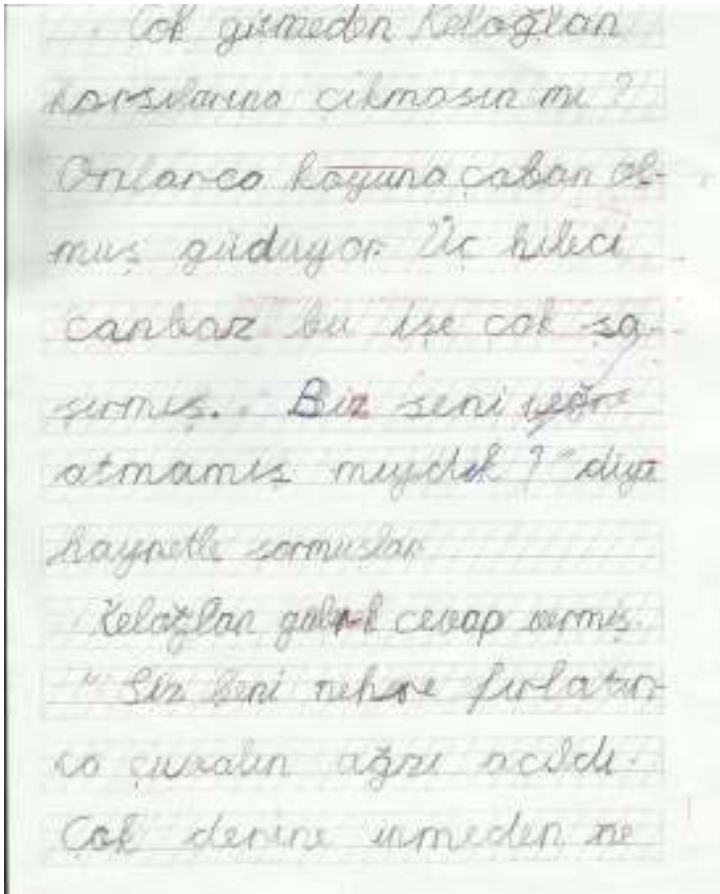 Çok gitmeden Keloğlan
karşılarına çıkmasın mı?
Onlarca koyuna çoban ol-
muş güdüyor. Üç hileci
canbaz bu işe çok şa-
şırmış. Biz seni
atmamış mıydık?" diye
hayretle sormuşlar
Keloğlan gülerek cevap vermiş.
"Siz beni nehire fırlatın-
ca çuvalın ağzı açıldı.
Çok derine inmeden ne